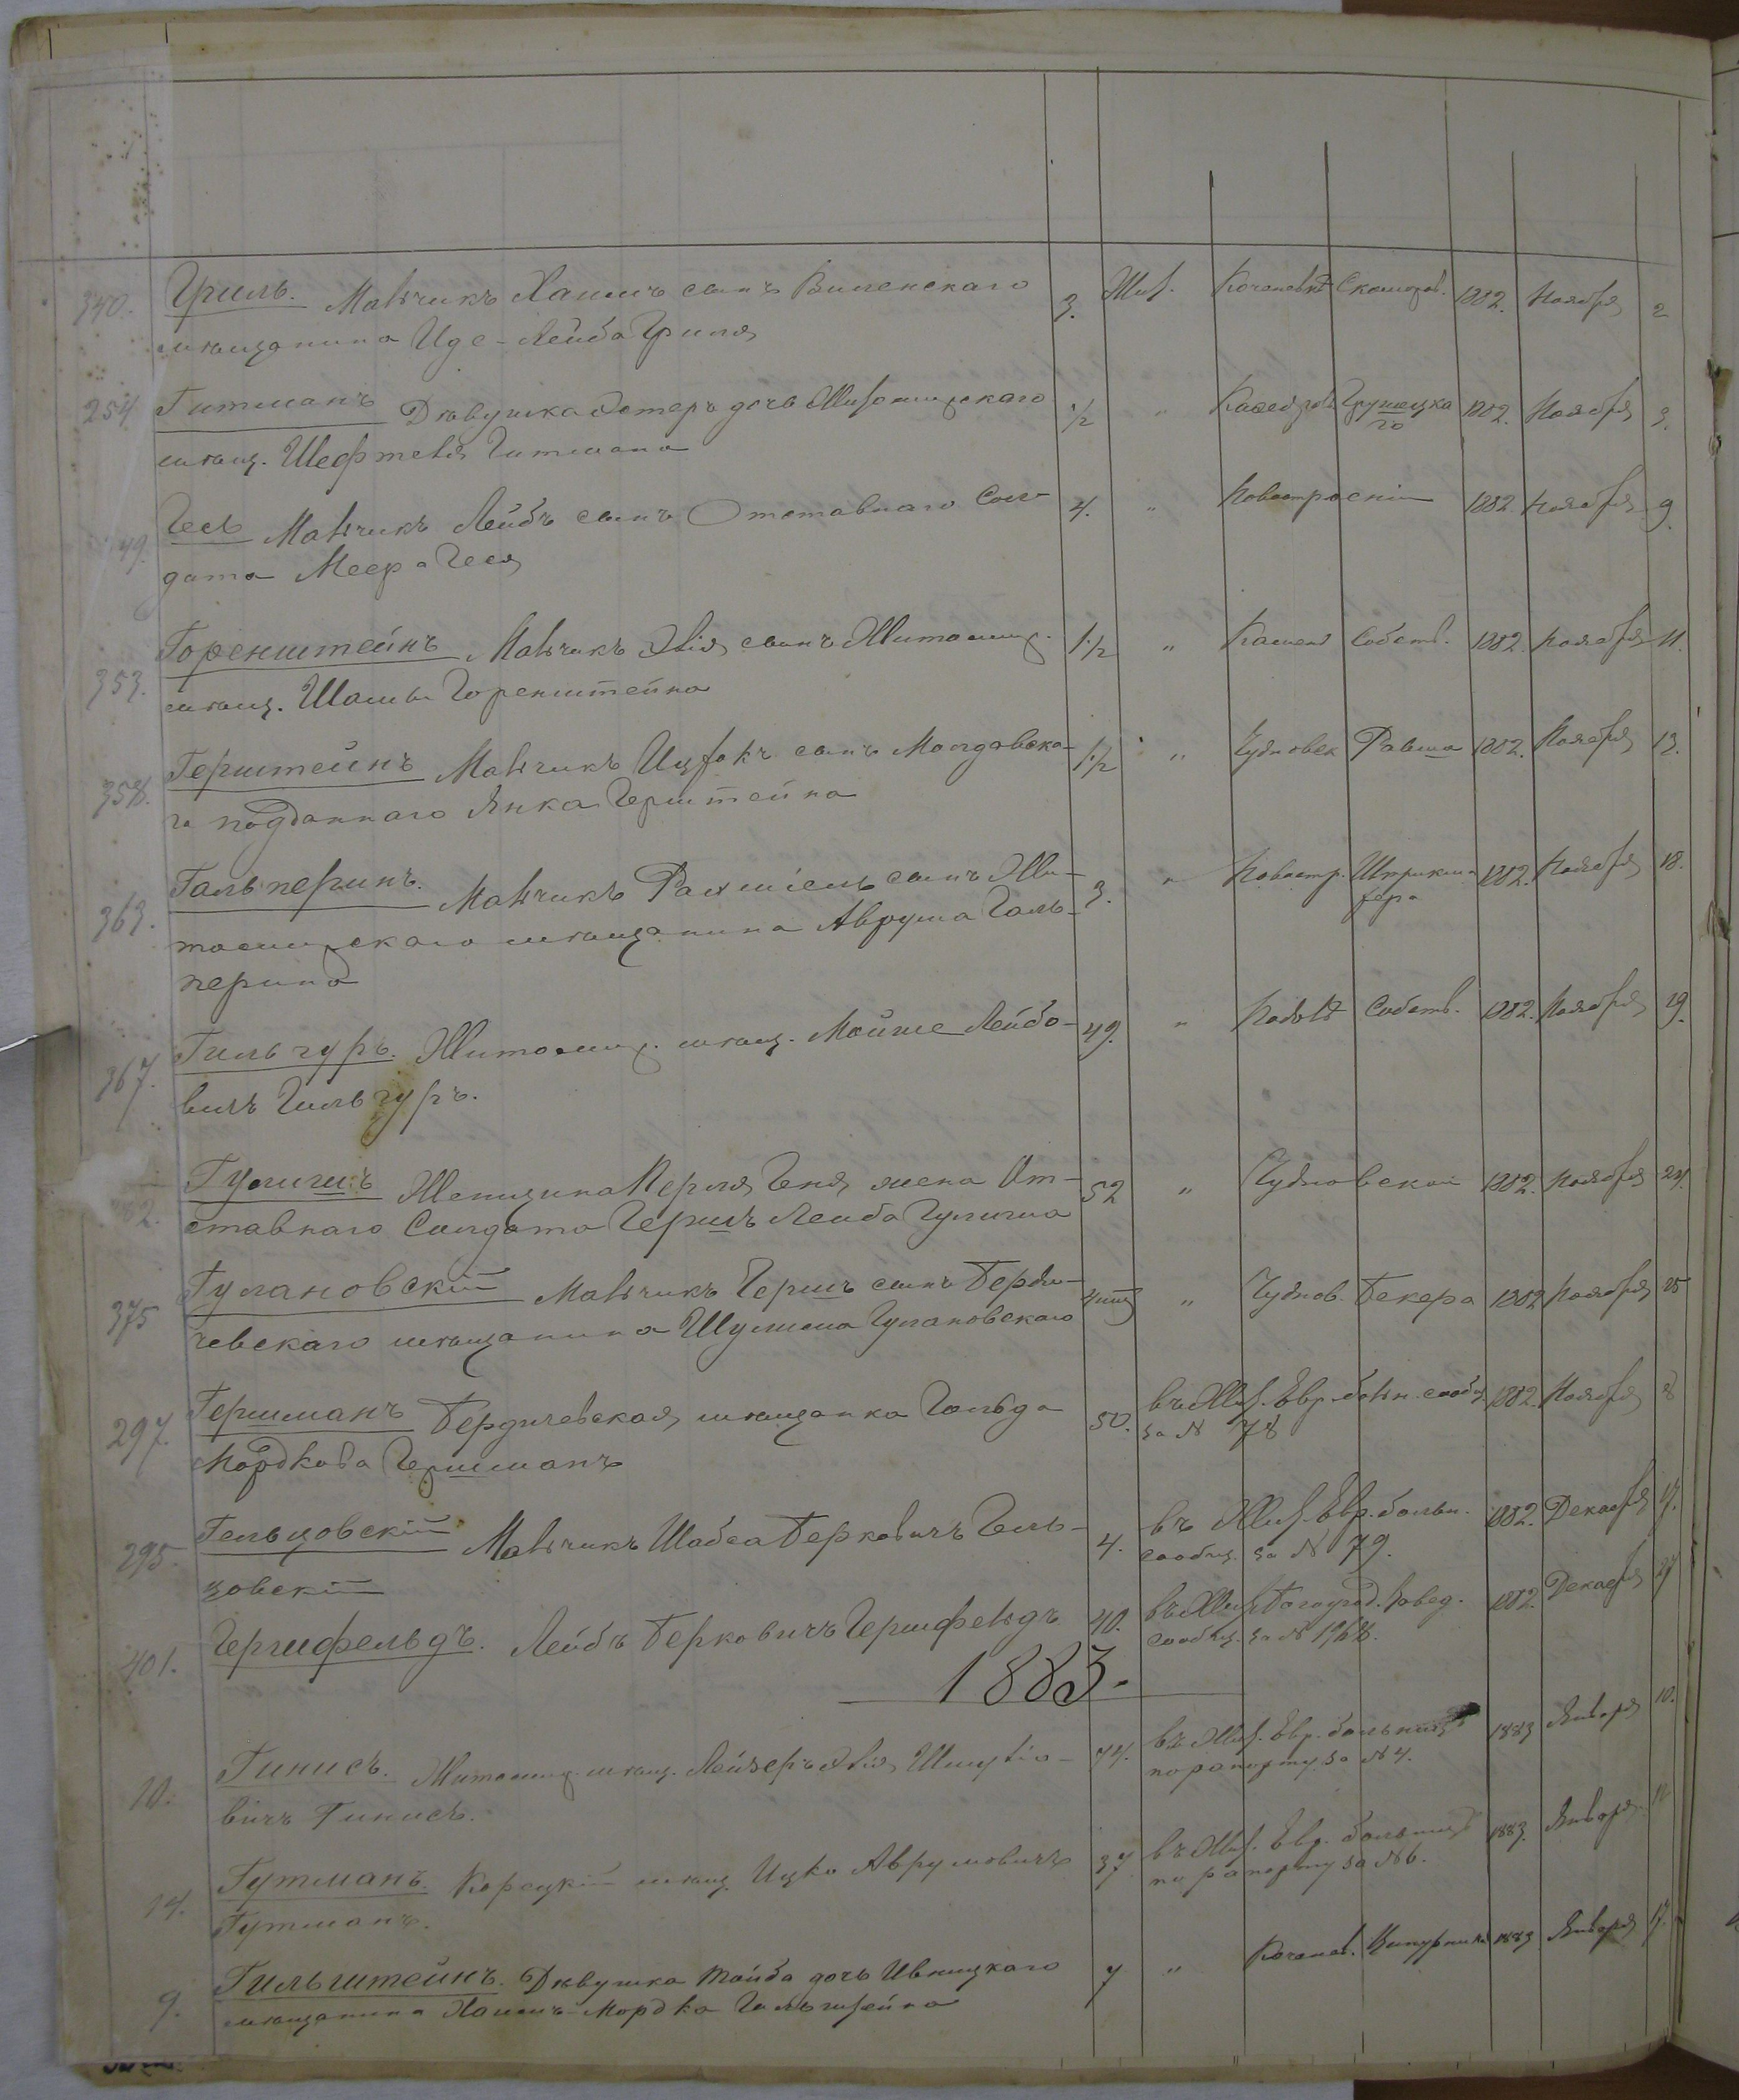 340. Гриль. Мальчикъ Хаимъ сынъ Виленскаго 3. Жит. Кочановк. 1882. Ноября 2
мѣщанина Иде-Лейба Гриля
254. Гитманъ Дѣвушка Эстеръ дочь Житомирскаго 1/2 " 1882. Ноября 3.
мѣщ. Шефтеля Гитмана
49. Гесь Мальчикъ Лейбъ сынъ Отставнаго Сол- 4. " Новостроеніи 1882. Ноября 9.
дата Меера Геся
353. Горенштейнъ Мальчикъ Эля сынъ Житомир. 1 1/2 " Собств. 1882. Ноября 11.
мѣщ. Шамы Горенштейна
358. Герштейнъ Мальчикъ Ицхокъ сынъ Молдавска- 1 1/2 " Чудновск 1882. Ноября 13.
го подданнаго Янка Герштейна
363. Гальперинъ. Мальчикъ Рахміель сынъ Жи- 3. " Новостр. 1882. Ноября 18.
томирскаго мѣщанина Аврума Галь-
перина
367. Гильгуръ. Житомир. мѣщ. Мойше Лейбо- 49. " Собств. 1882. Ноября 19.
вичъ Гильгуръ.
Гулигшъ Женщина Перля Геня жена От- 52 " Чудновской 1882. Ноября 24.
ставнаго Солдата Гершъ Лейба
375 Гулановскій Мальчикъ Гершъ сынъ Берди- " Чуднов. Бекера 1882 Ноября 25
чевскаго мѣщанина Шулима Гулановскаго
297. Гершманъ Бердичевская мѣщанка Гольда 50. въ Жит. Евр. больн. сообщ. 1882. Ноября 8
за № 78
Мордкова Гершманъ
295. Гельцовскій Мальчикъ Шабса Берковичъ Гель- 4. въ Жит. Евр. больн. 1882. Декабря 17.
сообщ. за № 79.
цовскій
401. Гершфельдъ. Лейбъ Берковичъ Гершфельдъ 40. 1882. Декабря 27
сообщ. за № 1968.
1883.
10. Гинисъ. Житомир. мѣщ. Лейзеръ Эля Шмуліо- 74. въ Жит. Евр. больницѣ 1883 Января 10.
по рапорту за № 4.
вичъ Гинисъ.
14. Гутманъ. Корецкій мѣщ. Ицко Аврумовичъ 37 въ Жит. Евр. больницѣ 1883. Января 11
по рапорту за № 6.
Гутманъ.
9. Гильштейнъ. Дѣвушка Тойба дочь Ивницкаго 7 " Кочанов. 1883 Января 17.
мѣщанина Хаимъ-Мордка Гильштейна